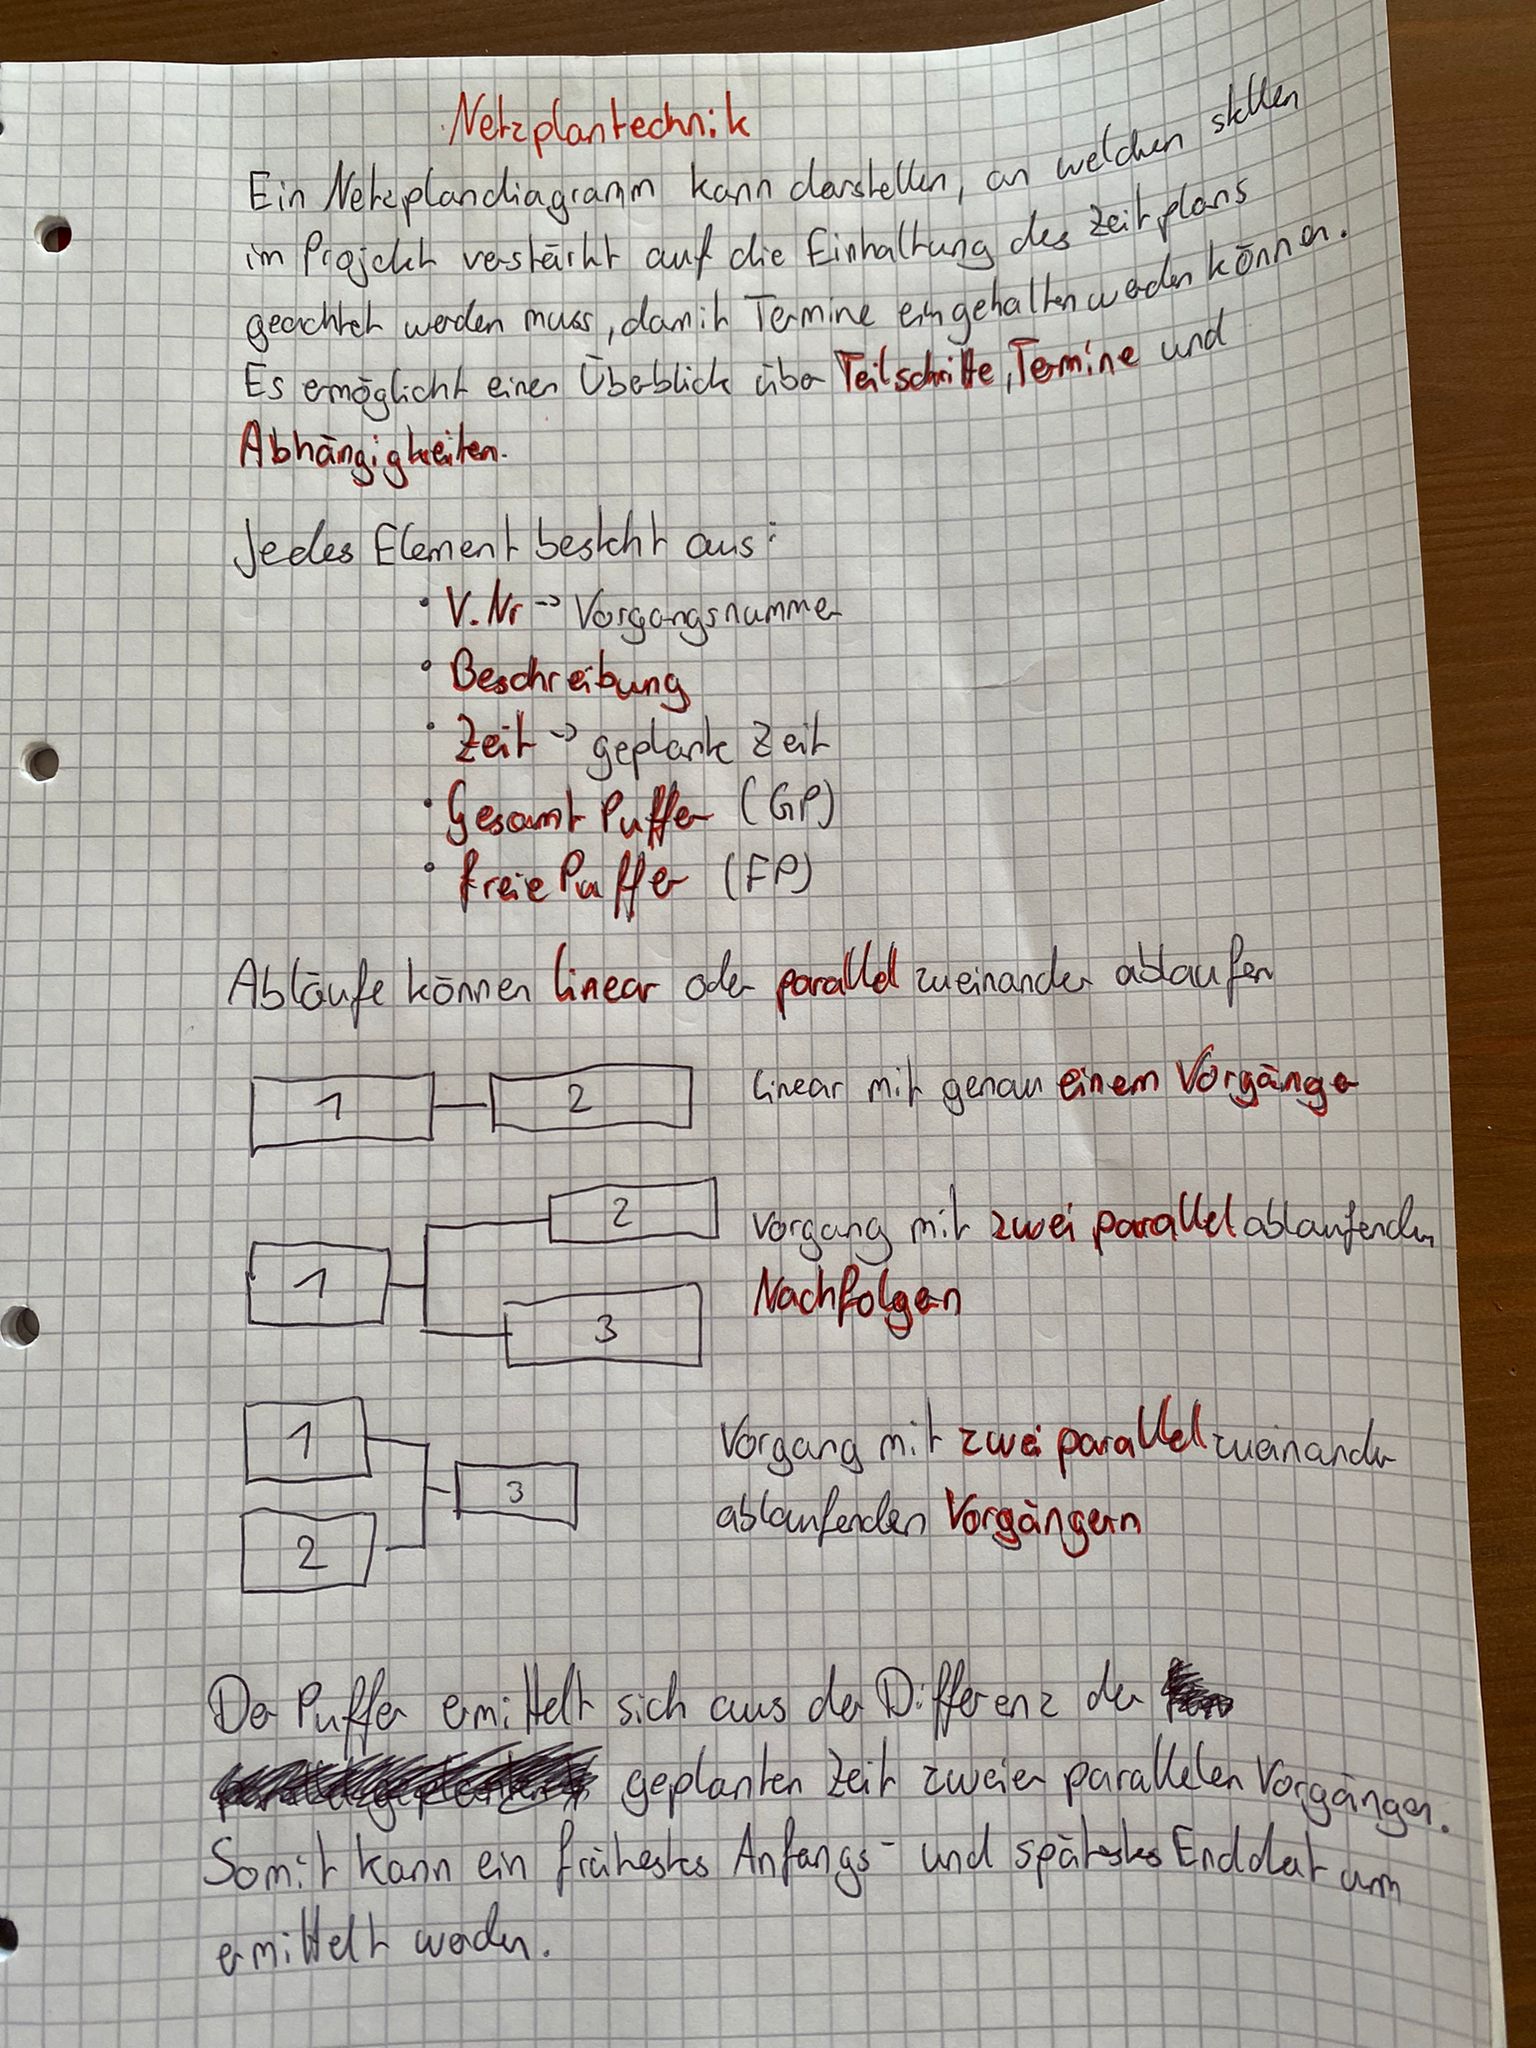 Netzplantechnik
Ein Netzplandiagramm kann darstellen, an welchen stellen
im Projekt verstärkt auf die Einhaltung des Zeitplans
geachtet werden muss, damit Termine eingehalten werden können.
Es ermöglicht einen Überblick über Teilschritte, Termine und
Abhängigkeiten.
Jedes Element besteht aus:
• V.Nr -> Vorgangsnummer
• Beschreibung
• Zeit -> geplante Zeit
• Gesamt Puffer (GP)
• freie Puffer (FP)
Abläufe können linear oder parallel zueinander ablaufen
1 2 linear mit genau einem Vorgänger
2 Vorgang mit zwei parallel ablaufenden
1 Nachfolgern
3
1 Vorgang mit zwei parallel zueinander
3 ablaufenden Vorgängern
2
Der Puffer ermittelt sich aus der Differenz der
geplanten Zeit zweier parallelen Vorgänger.
Somit kann ein frühestes Anfangs- und spätestes Enddatum
ermittelt werden.